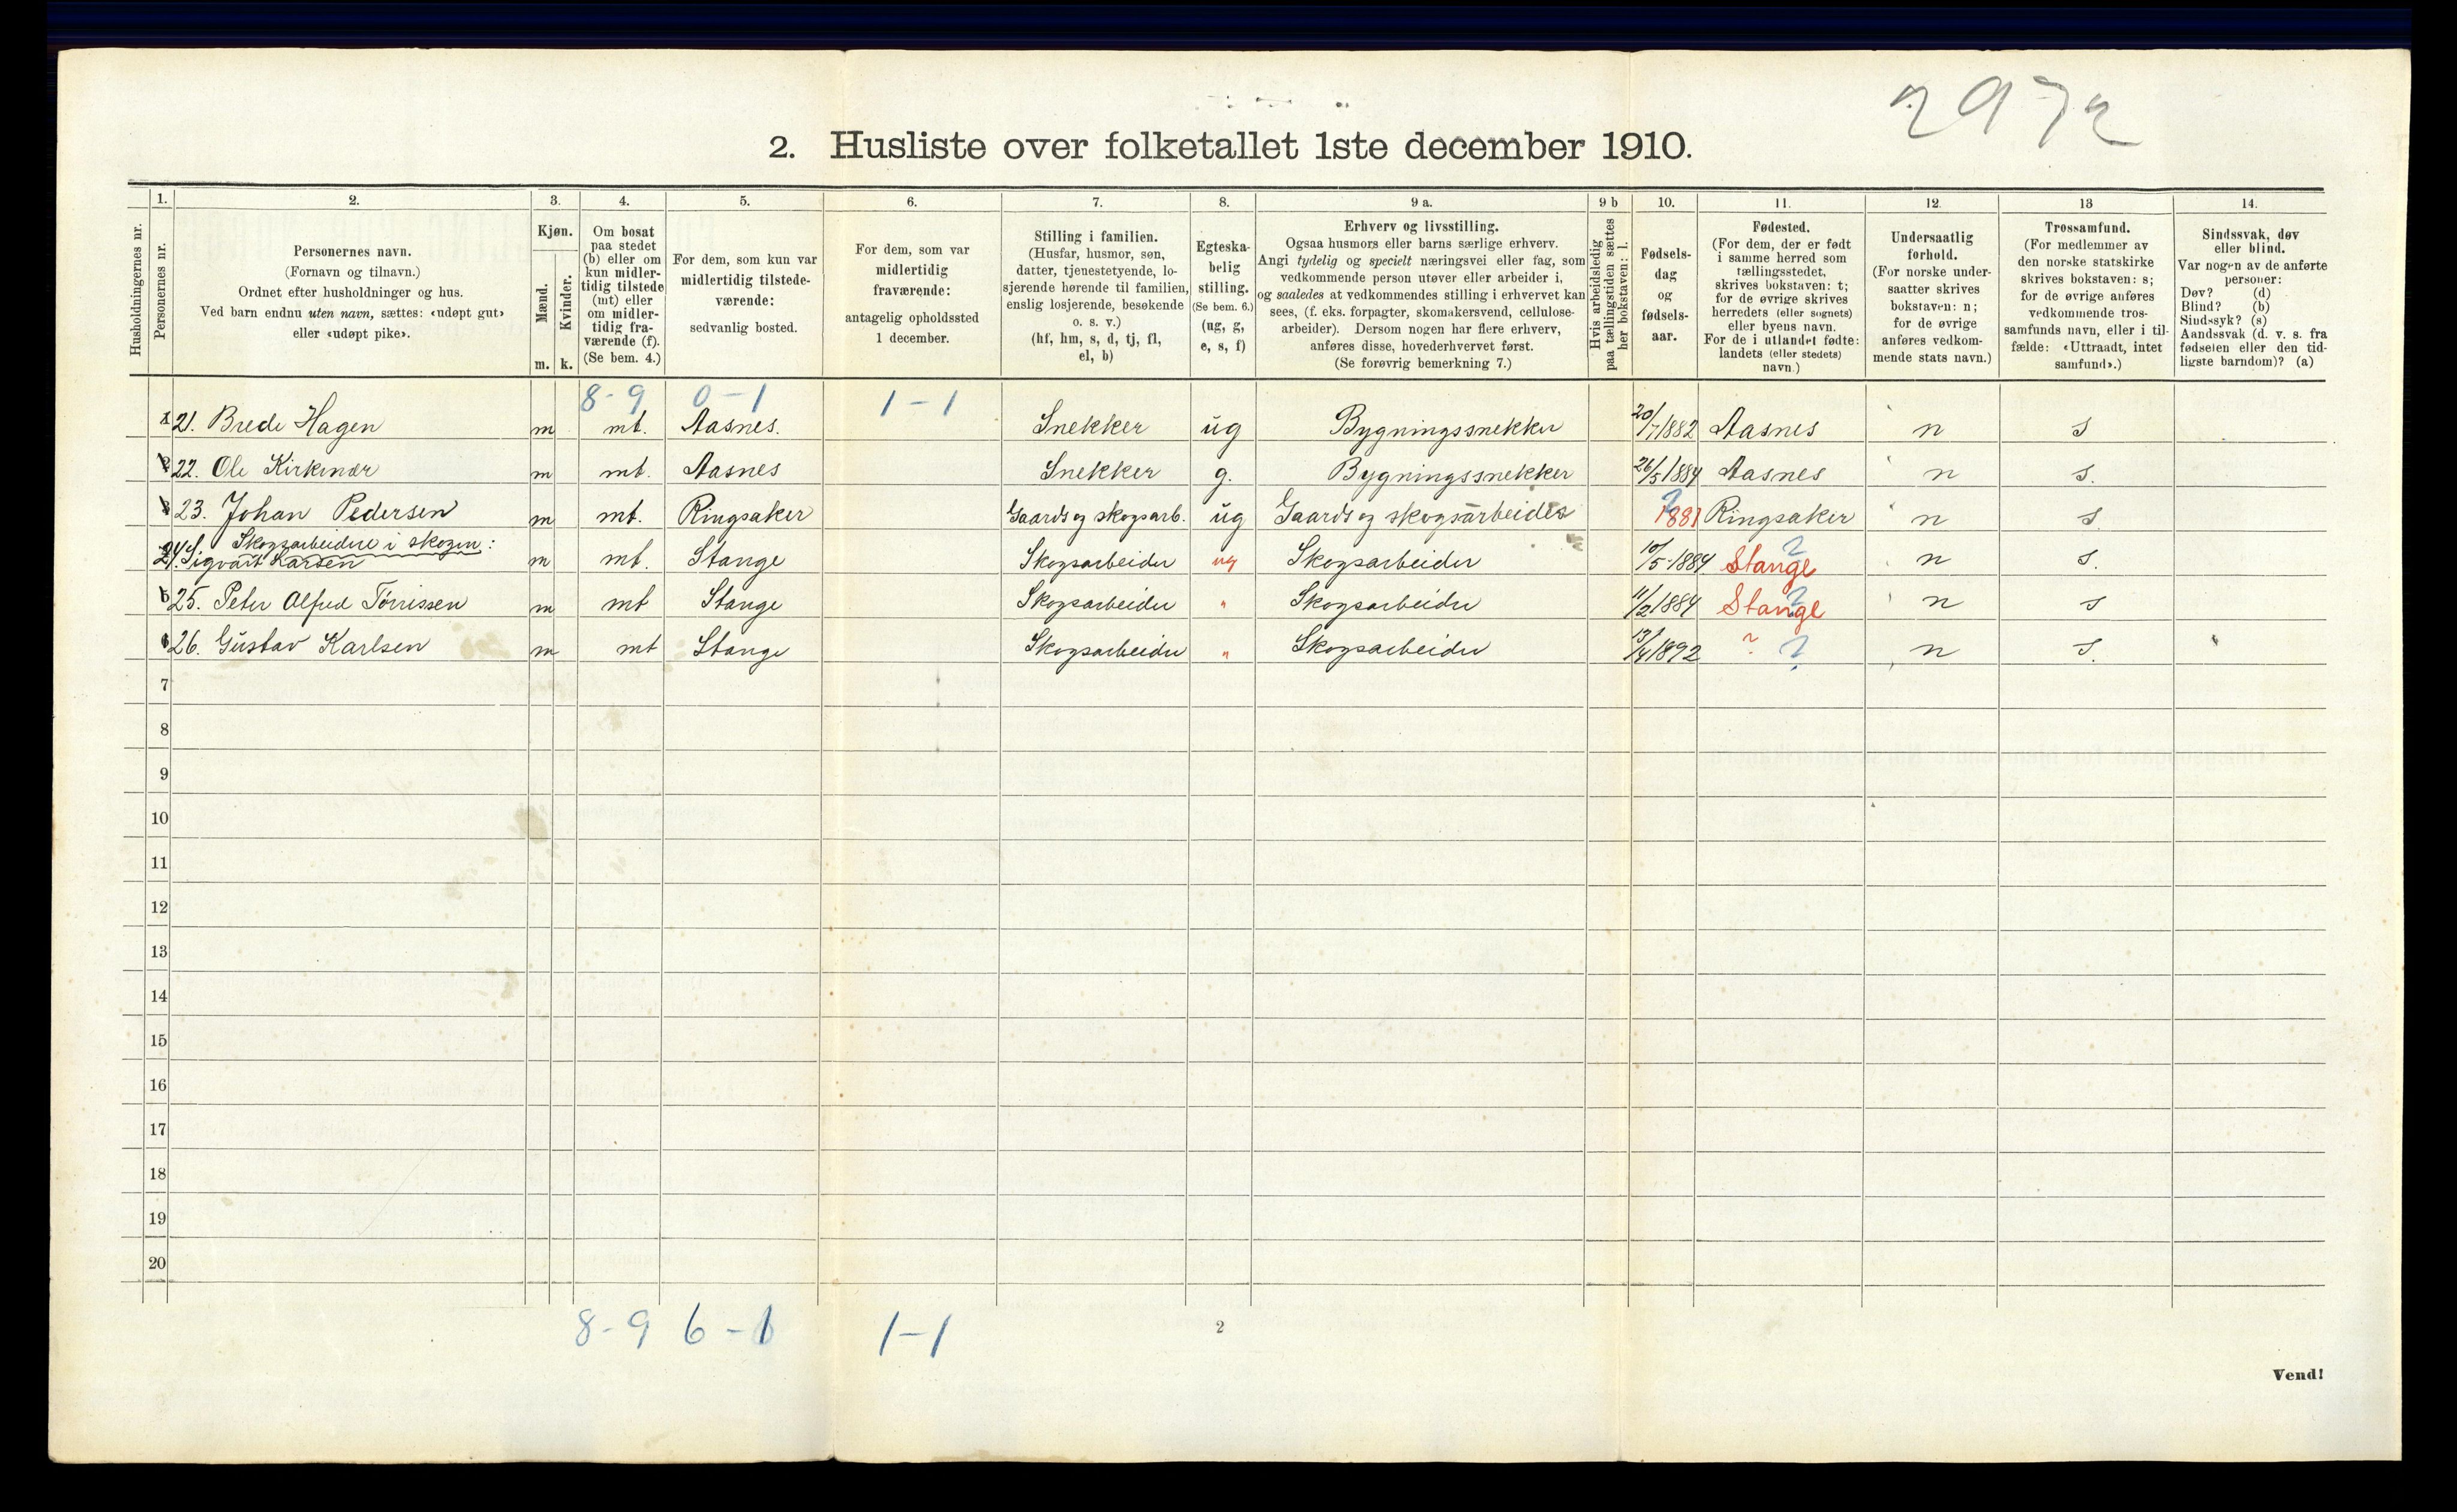 2972
2. Husliste over folketallet 1ste december 1910.
Husholdningernes nr.
1. Personernes nr.
2.
Personernes navn.
(Fornavn og tilnavn.)
Ordnet efter husholdninger og hus.
Ved barn endnu uten navn, sættes: «udøpt gut»
eller «udøpt pike».
3.
Kjøn.
Mænd. Kvinder.
m. k.
4.
Om bosat
paa stedet
(b) eller om
kun midler-
tidig tilstede
(mt) eller
om midler-
tidig fra-
værende (f).
(Se bem. 4.)
5.
For dem, som kun var
midlertidig tilstede-
værende:
sedvanlig bosted.
6.
For dem, som var
midlertidig
fraværende:
antagelig opholdssted
1 december.
7.
Stilling i familien.
(Husfar, husmor, søn,
datter, tjenestetyende, lo-
sjerende hørende til familien,
enslig losjerende, besøkende
o. s. v.)
(hf, hm, s, d, tj, fl,
el, b)
8.
Egteska-
belig
stilling.
(Se bem. 6.)
(ug, g,
e, s, f)
9 a.
Erhverv og livsstilling.
Ogsaa husmors eller barns særlige erhverv.
Angi tydelig og specielt næringsvei eller fag, som
vedkommende person utøver eller arbeider i,
og saaledes at vedkommendes stilling i erhvervet kan
sees, (f. eks. forpagter, skomakersvend, cellulose-
arbeider). Dersom nogen har flere erhverv,
anføres disse, hovederhvervet først.
(Se forøvrig bemerkning 7.)
9 b
Hvis arbeidsledig
paa tællingstiden sættes
her bokstaven: l.
10.
Fødsels-
dag
og
fødsels-
aar.
11.
Fødested.
(For dem, der er født
i samme herred som
tællingsstedet,
skrives bokstaven: t;
for de øvrige skrives
herredets (eller sognets)
eller byens navn.
For de i utlandet fødte:
landets (eller stedets)
navn.)
12.
Undersaatlig
forhold.
(For norske under-
saatter skrives
bokstaven: n;
for de øvrige
anføres vedkom-
mende stats navn.)
13
Trossamfund.
(For medlemmer av
den norske statskirke
skrives bokstaven: s;
for de øvrige anføres
vedkommende tros-
samfunds navn, eller i til-
fælde: «Uttraadt, intet
samfund».)
14.
Sindssvak, døv
eller blind.
Var nogen av de anførte
personer:
Døv? (d)
Blind? (b)
Sindssyk? (s)
Aandssvak (d. v. s. fra
fødselen eller den tid-
ligste barndom)? (a)
8-9 0-1 1-1
21. Brede Hagen m mt. Aasnes. Snekker ug Bygningssnekker 20/7 1882 Aasnes n s
22. Ole Kirkenær m mt. Aasnes Snekker g. Bygningssnekker 26/5 1884 Aasnes n s.
23. Johan Pedersen m mt. Ringsaker Gaards og skogsarb. ug Gaards og skogsarbeider ? 1881 Ringsaker n s.
Skogsarbeidere i skogen:
24. Sigvart Karsen m mt. Stange Skogsarbeider ug Skogsarbeider 10/5-1884 Stange ? n s.
25. Peter Alfred Tørrissen m mt Stange Skogsarbeider " Skogsarbeider 11/2 1884 Stange ? n s
26. Gustav Karlsen m mt Stange Skogsarbeider " Skogsarbeider 13/4 1892 ? ? n s.
7
8
9
10
11
12
13
14
15
16
17
18
19
20
8-9 6-1 1-1
2
Vend!